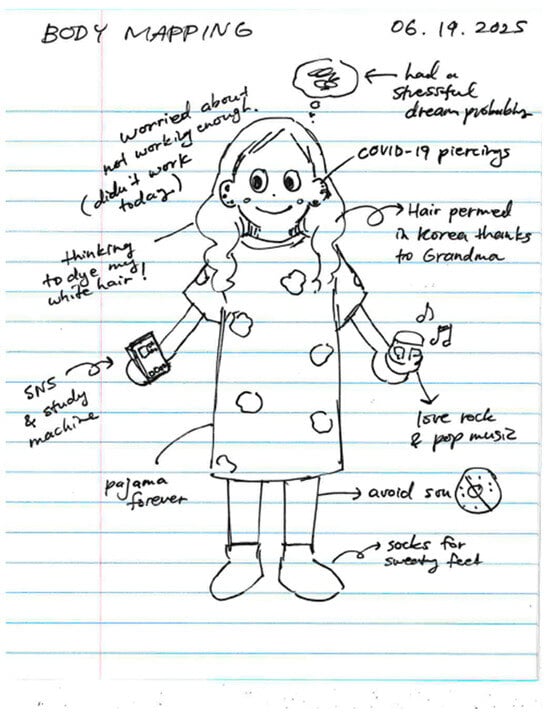 BODY MAPPING
06.19.2025
had a
stressful
dream probably
worried about
not working enough.
(didn't work
today.)
COVID-19 piercings
Hair permed
in Korea thanks
to Grandma
thinking
to dye my
white hair!
SNS
& study
machine
love rock
& pop music
pajama
forever
avoid sun
socks for
sweaty feet